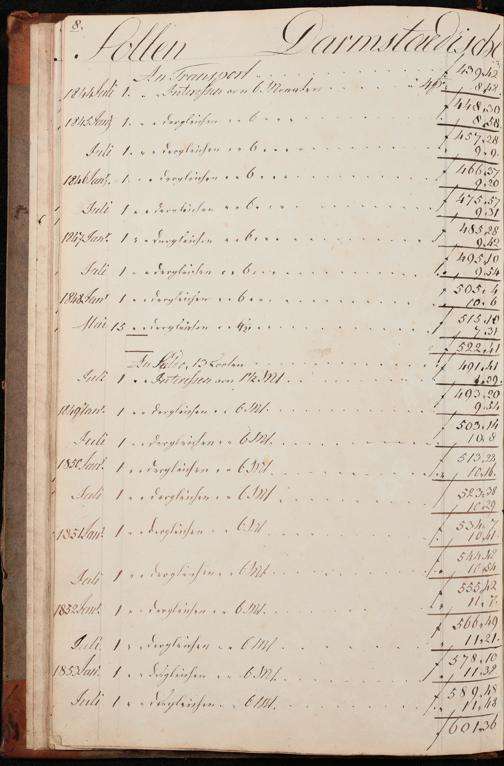 8.
Sollen Darmstaedisch
An Transport . . . . . 439.42
1844 Juli 1. " Interessen von 6 Monaten . . . 4 pr f 8.48
f 448.30
1845 Jan. 1. " " dergleichen " " 6 " " " 8.58
f 457.28
Juli 1. " " dergleichen " " 6 " " " 9.9
f 466.37
1846 Jan. 1. " " dergleichen " " 6 " " " 9.20
f 475.57
Juli 1 " " dergleichen " " 6 " " " 9.31
f 485.28
1847 Jan. 1 " " dergleichen " " 6 " " " 9.42
f 495.10
Juli 1 " " dergleichen " " 6 " " " 9.54
f 505.4
1848 Jan. 1 " " dergleichen " " 6 " " 10.6
f 515.10
Mai 15 " " dergleichen " " 4 1/2 " " 7.31
f 522.41
An Saldo, 13 Loosen . . . f 491.41
Juli 1 " " Interessen von 1 1/2 Mt. . . . 1.39
f 493.20
1849 Jan. 1 " " dergleichen " " 6 Mt. . . . 9.54
f 503.14
Juli 1 " " dergleichen " " 6 Mt. . . . 10.8
f 513.22
1850 Jan. 1 " " dergleichen " " 6 Mt. . . . 10.16
f 523.38
Juli 1 " " dergleichen " " 6 Mt. . . . 10.29
f 534.7
1851 Jan. 1 " " dergleichen " " 6 Mt. . . . 10.41
f 544.48
Juli 1 " " dergleichen " " 6 Mt. . . . 10.54
f 555.42
1852 Jan. 1 " " dergleichen " " 6 Mt. . . . 11.7
f 566.49
Juli 1 " " dergleichen " " 6 Mt. . . . 11.21
f 578.10
1853 Jan. 1 " " dergleichen " " 6 Mt. . . . 11.38
f 589.48
Juli 1 " " dergleichen " " 6 Mt. . . . 11.48
f 601.36